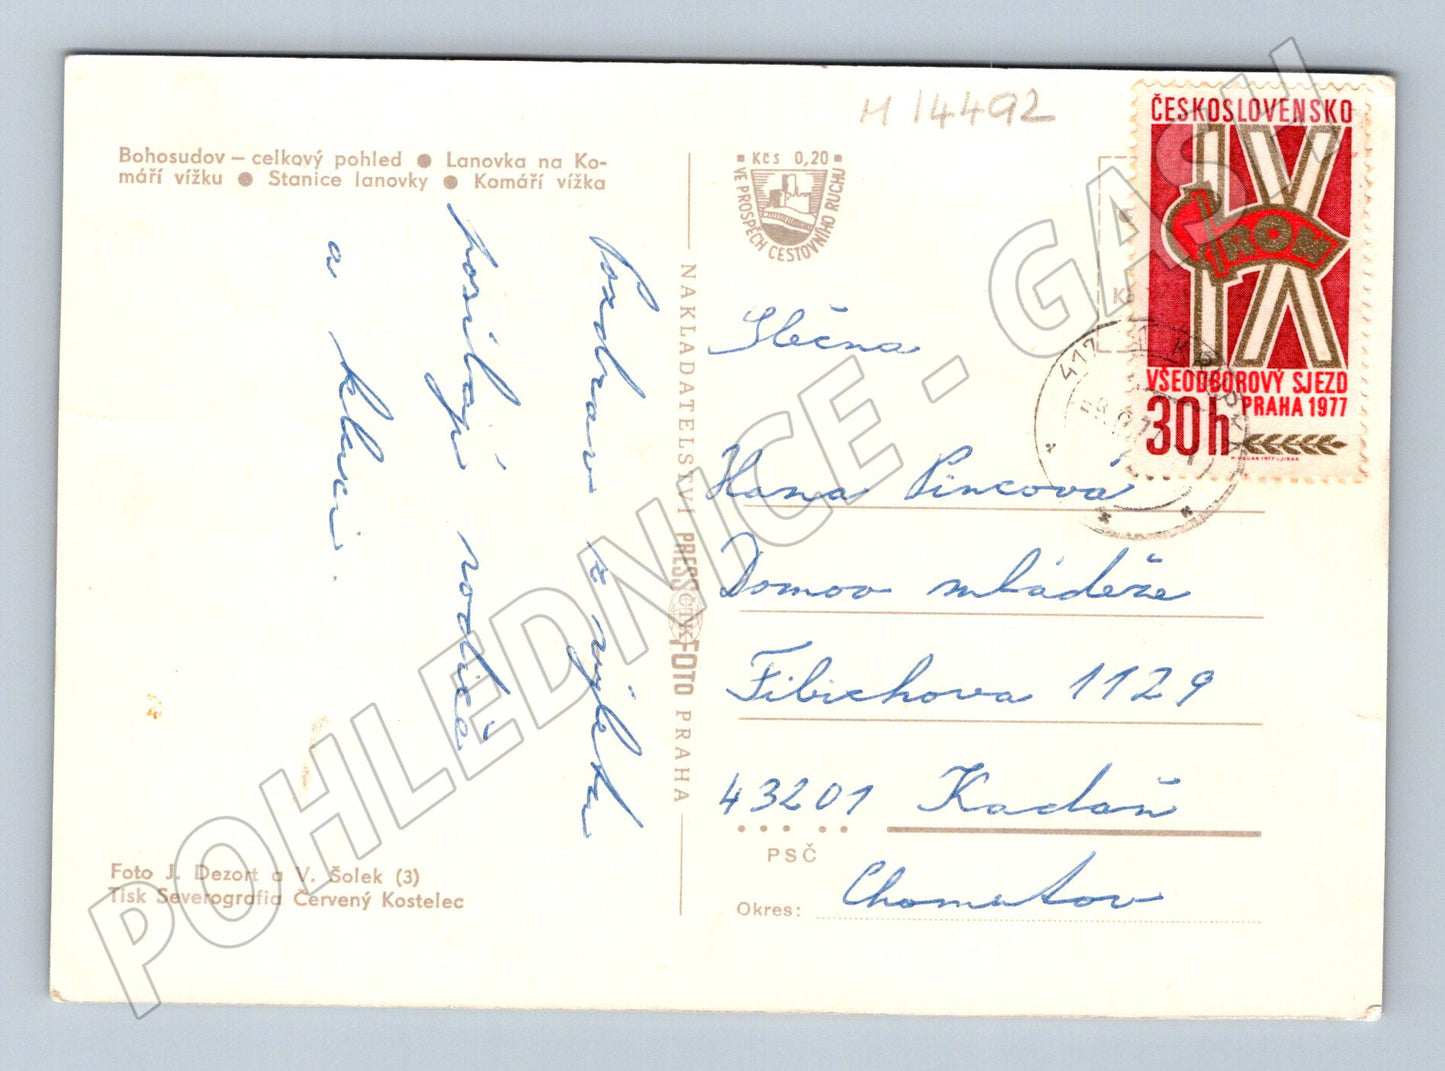 M 14492
Bohosudov – celkový pohled ● Lanovka na Ko-
máří vížku ● Stanice lanovky ● Komáří vížka
Kčs 0,20
VE PROSPĚCH CESTOVNÍHO RUCHU
ČESKOSLOVENSKO
IX
ROH
VŠEODBOROVÝ SJEZD
PRAHA 1977
30h
Pozdrav z výletu
posílají rodiče
a kluci.
NAKLADATELSTVÍ PRESSFOTO PRAHA
ČTK
Slečna
Hana Pincová
Domov mládeže
Fibichova 1129
43201 Kadaň
PSČ
Okres: Chomutov
Foto J. Dezort a V. Šolek (3)
Tisk Severografia Červený Kostelec
POHLEDNICE - GASH